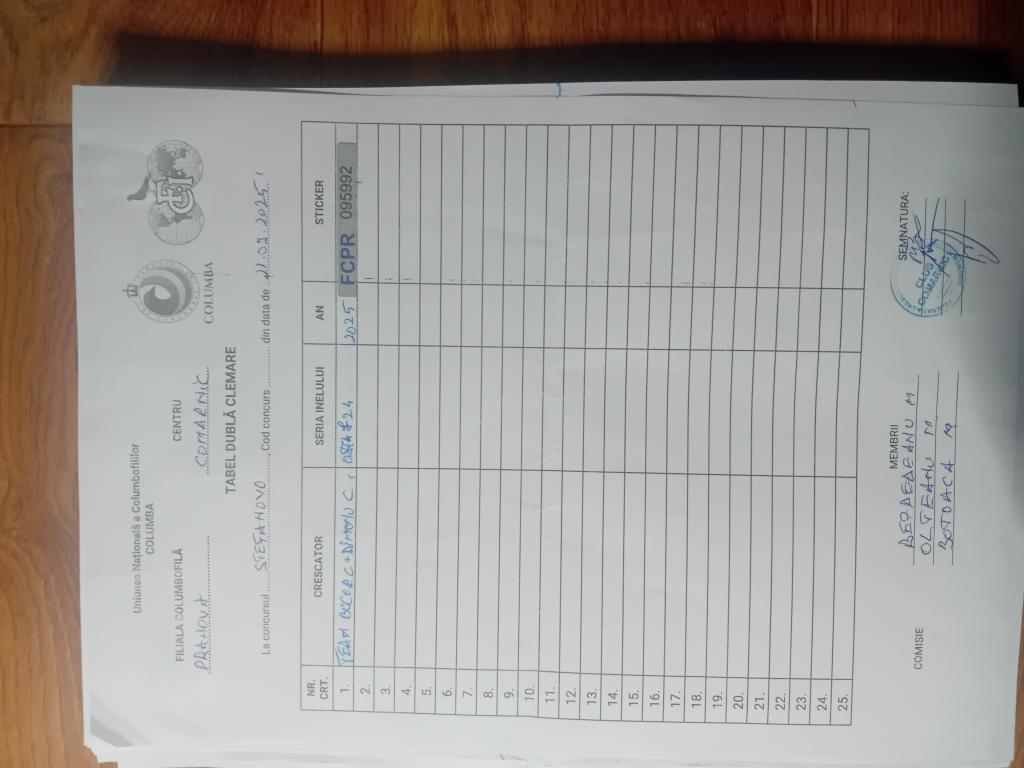 Uniunea Națională a Columbofililor
COLUMBA
COLUMBA
FCI
FILIALA COLUMBOFILĂ CENTRU
PRAHOVA COMARNIC
TABEL DUBLĂ CLEMARE
La concursul STEFANOVO, Cod concurs ............ din data de 2025
NR. CRT. CRESCATOR SERIA INELULUI AN STICKER
1. TEAM 2025 FCPR 095992
2.
3.
4.
5.
6.
7.
8.
9.
10.
11.
12.
13.
14.
15.
16.
17.
18.
19.
20.
21.
22.
23.
24.
25.
COMISIE MEMBRII SEMNATURA:
BEZDEDEANU M
OLTEANU M
BOTOACA M
CLUB
COMARNIC